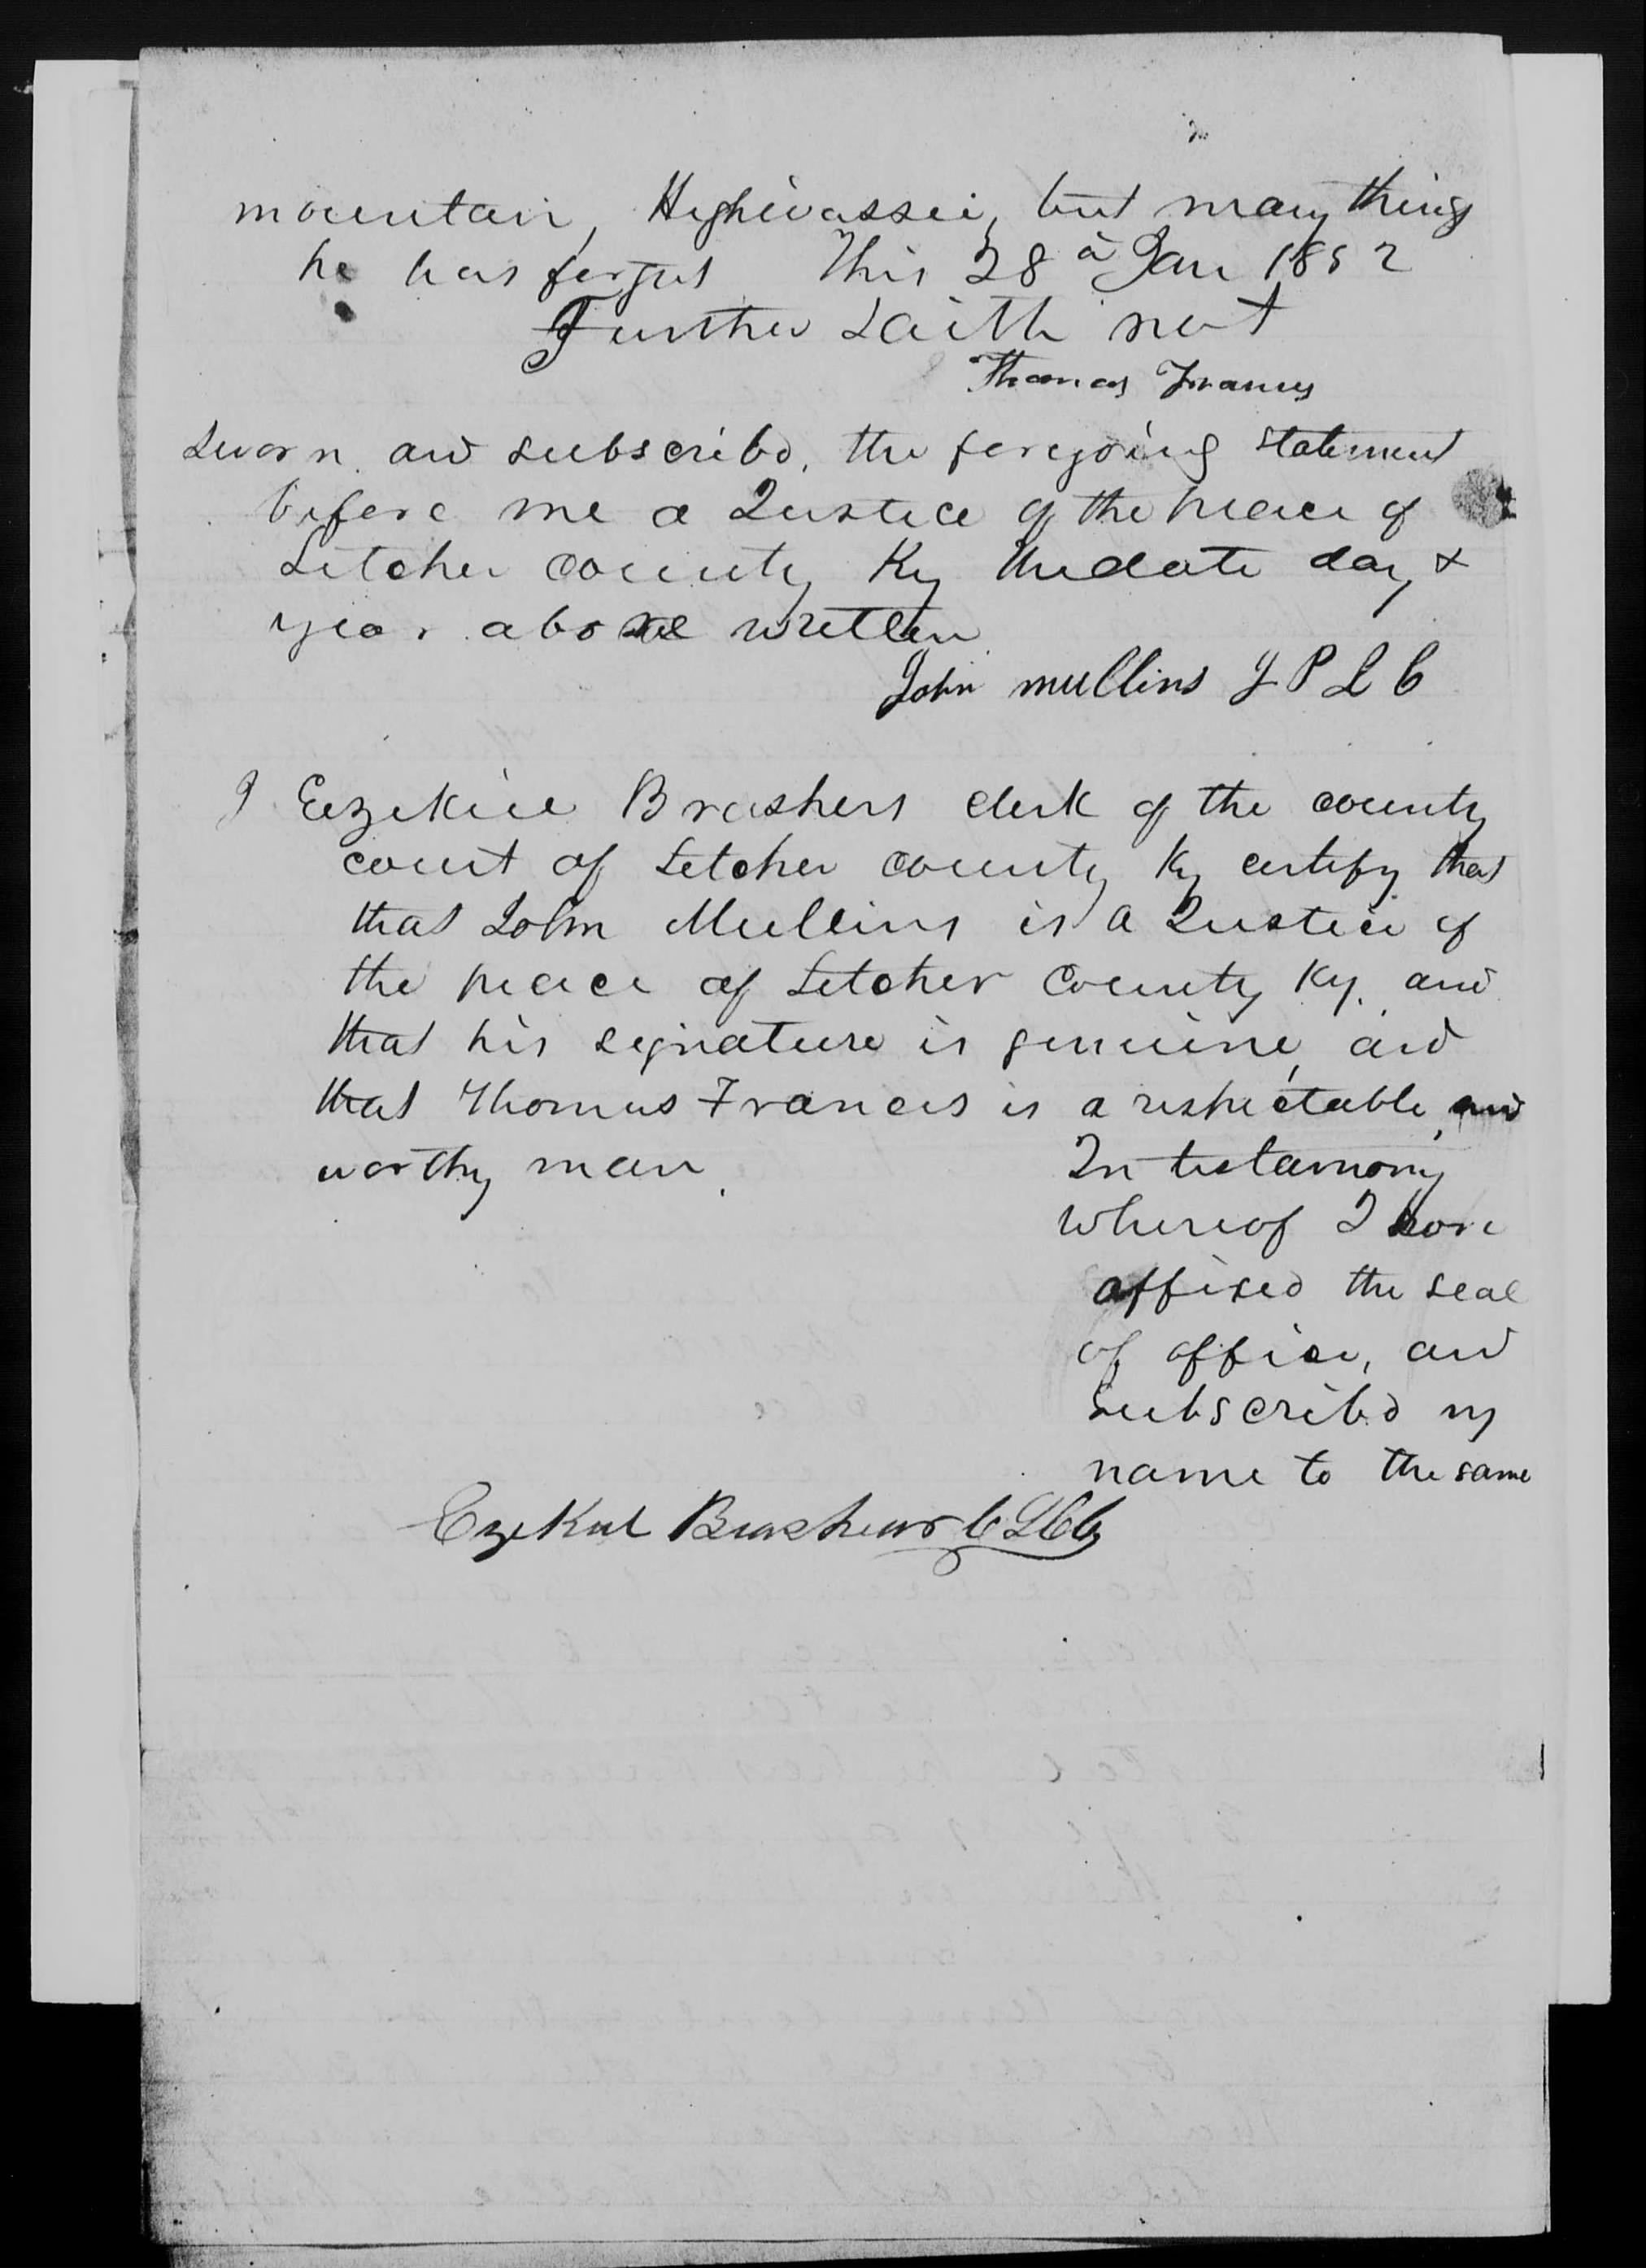 mountain, Highwassei, but many things
he has forgot This 28 a Jan 1852
Further Saith not
Thomas Francis
Sworn and subscribd, the foregoing statement
before me a Justice of the peace of
Letcher county Ky the date day &
year above written
John mullins J P L C
I Ezekiel Brashers clerk of the county
court of Letcher county Ky certify that
that John Mullins is a Justice of
the peace of Letcher County Ky. and
that his signature is genuine, and
that Thomas Francis is a respectable, and
worthy man.
In testamony
whereof I have
affixed the seal
of office, and
subscribd my
name to the same
Ezekiel Brashears C L C C